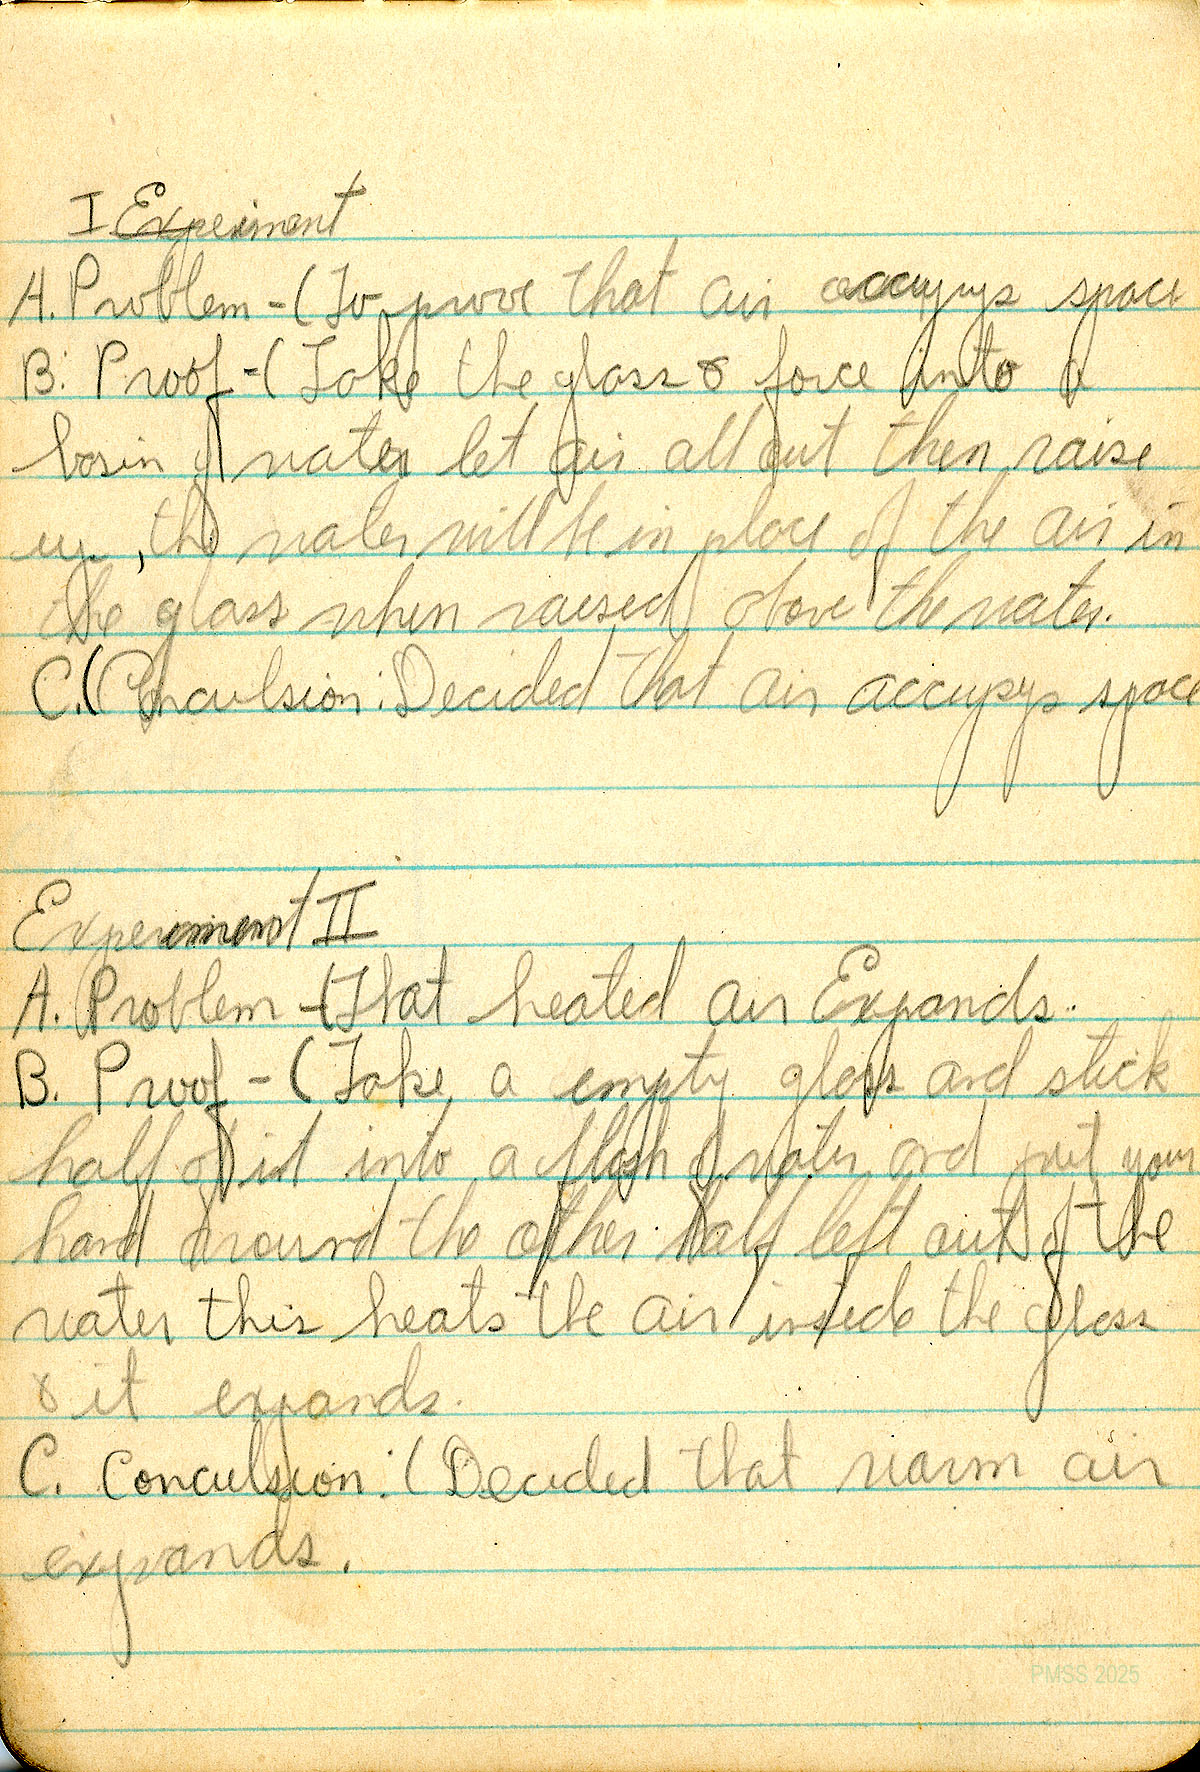 I Experiment
A. Problem - (To prove that air occupys space
B. Proof - (Take the glass & force into a
basin of water let air all out then raise
up, the water will be in place of the air in
the glass when raised above the water.
C. (Conculsion: Decided that air occupys space
Experiment II
A. Problem - (That heated air Expands.
B. Proof - (Take a empty glass and stick
half of it into a flask of water and put your
hand around the other half left out of the
water this heats the air inside the glass
& it expands.
C. Conculsion: (Decided that warm air
expands.
PMSS 2025